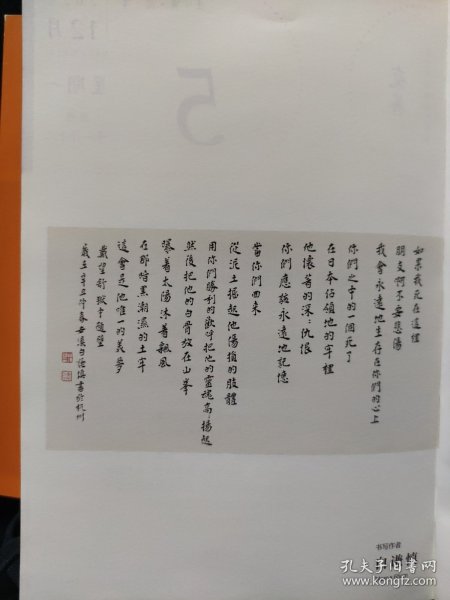 12月
星期一
5
如果我死在這裡
朋友啊不要悲傷
我會永遠地生存在你們的心上
你們之中的一個死了
在日本佔領地的牢裡
他懷着的深:仇恨
你們應該永遠地記憶
當你們回來
從泥土掘起他傷損的肢體
用你們勝利的歡呼把他的靈魂高:揚起
然後把他的白骨放在山峯
曝着太陽沐着飄風
在那暗黑潮濕的土牢
這會是他唯一的美夢
戴望舒獄中題壁
歲在辛丑仲春 白謙慎書於杭州
书写作者
白谦慎
孔夫子旧书网